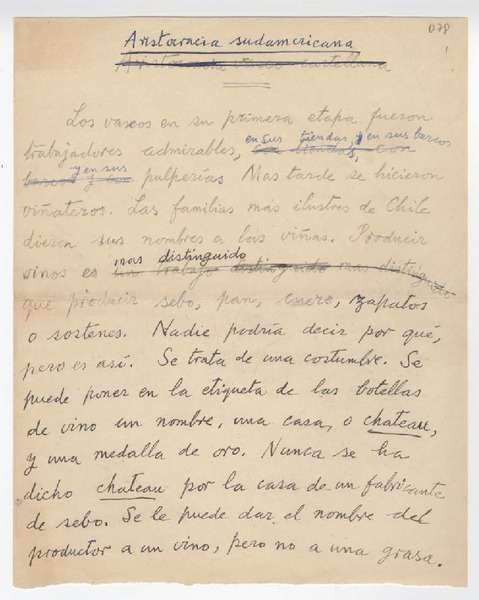 078
Aristocracia sudamericana
Aristocracia vasco castellana
Los vascos en su primera etapa fueron
en sus tiendas, y en sus barcos
trabajadores admirables, con
y en sus
barcos y sus pulperías Mas tarde se hicieron
viñateros. Las familias más ilustres de Chile
dieron sus nombres a las viñas. Producir
mas distinguido
vinos es un trabajo distinguido mas distinguido
que producir sebo, pan, cuero, zapatos
o sostenes. Nadie podría decir por qué,
pero es así. Se trata de una costumbre. Se
puede poner en la etiqueta de las botellas
de vino un nombre, una casa, o chateau,
y una medalla de oro. Nunca se ha
dicho chateau por la casa de un fabricante
de sebo. Se le puede dar el nombre del
productor a un vino, pero no a una grasa.